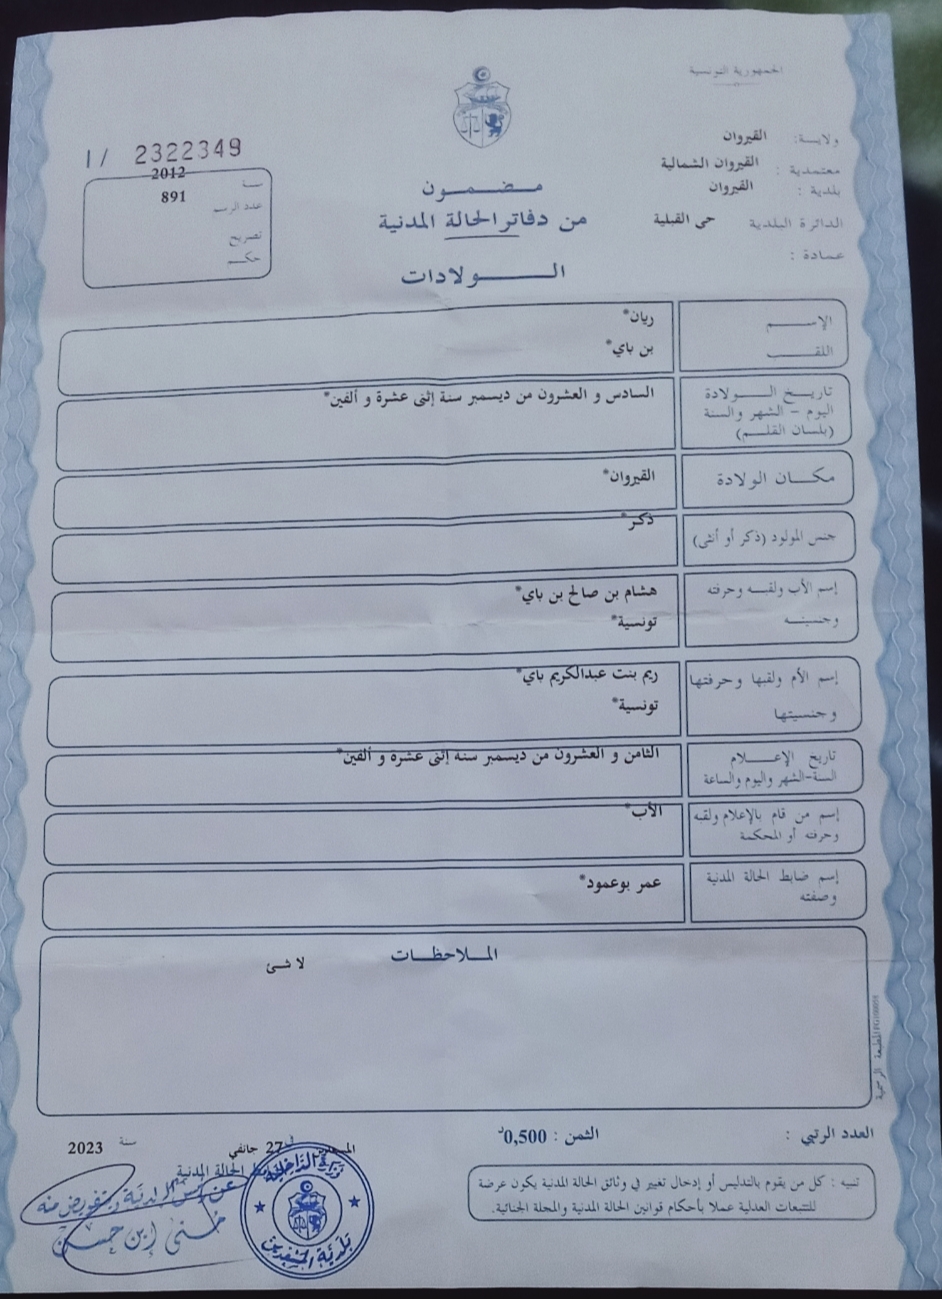 الجمهورية التونسية
ولاية: القيروان
معتمدية : القيروان الشمالية
بلدية : القيروان
الدائرة البلدية حي القبلية
عمادة :
I/ 2322349
سنة 2012
عدد الرسم 891
تصريح
حكم
مضمون
من دفاتر الحالة المدنية
الولادات
الإسم ريان*
اللقب بن باي*
تاريخ الولادة السادس و العشرون من ديسمبر سنة إثنى عشرة و ألفين*
اليوم - الشهر والسنة
(بلسان القلم)
مكان الولادة القيروان*
جنس المولود (ذكر أو أنثى) ذكر*
إسم الأب ولقبه وحرفته هشام بن صالح بن باي*
وجنسيته تونسية*
إسم الأم ولقبها وحرفتها ريم بنت عبدالكريم باي*
وجنسيتها تونسية*
تاريخ الإعلام الثامن و العشرون من ديسمبر سنة إثنى عشرة و ألفين*
السنة-الشهر واليوم والساعة
إسم من قام بالإعلام ولقبه الأب*
وحرفته أو المحكمة
إسم ضابط الحالة المدنية عمر بوعمود*
وصفته
الملاحظات
لا شئ
المطبعة الرسمية
العدد الرتبي : الثمن : 0,500د
27 جانفي سنة 2023
الحالة المدنية
عن رئيس البلدية وبتفويض منه
وزارة الداخلية
تنبيه : كل من يقوم بالتدليس أو إدخال تغيير في وثائق الحالة المدنية يكون عرضة
للتتبعات العدلية عملا بأحكام قوانين الحالة المدنية والمجلة الجنائية.